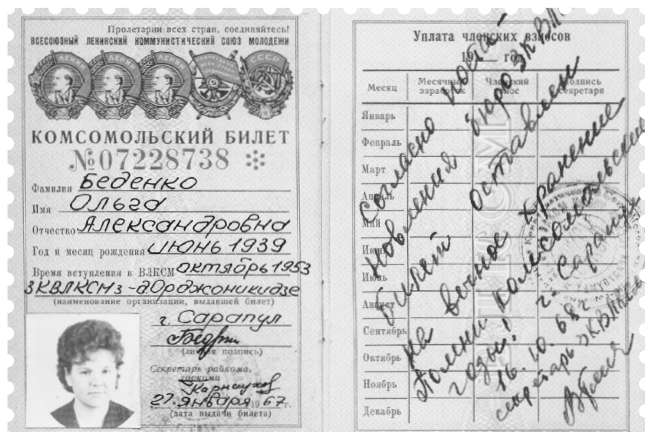 Пролетарии всех стран, соединяйтесь!
ВСЕСОЮЗНЫЙ ЛЕНИНСКИЙ КОММУНИСТИЧЕСКИЙ СОЮЗ МОЛОДЕЖИ
КОМСОМОЛЬСКИЙ БИЛЕТ
№07228738
Фамилия Беденко
Имя Ольга
Отчество Александровна
Год и месяц рождения июнь 1939
Время вступления в ВЛКСМ октябрь 1953
ЗКВЛКСМ з-д Орджоникидзе
(наименование организации, выдавшей билет)
г. Сарапул
(личная подпись)
Секретарь райкома,
горкома
27 января 1967 г.
(дата выдачи билета)
Уплата членских взносов
19 год
Месяц
Месячный заработок
Членский взнос
Подпись секретаря
Январь
Февраль
Март
Апрель
Май
Июнь
Июль
Август
Сентябрь
Октябрь
Ноябрь
Декабрь
Согласно поста-
новления бюро ЗКВЛКСМ
билет оставлен
на вечное хранение
Помни комсомольские
годы! г. Сарапул
16.10.68г.
секретарь ЗКВЛКСМ